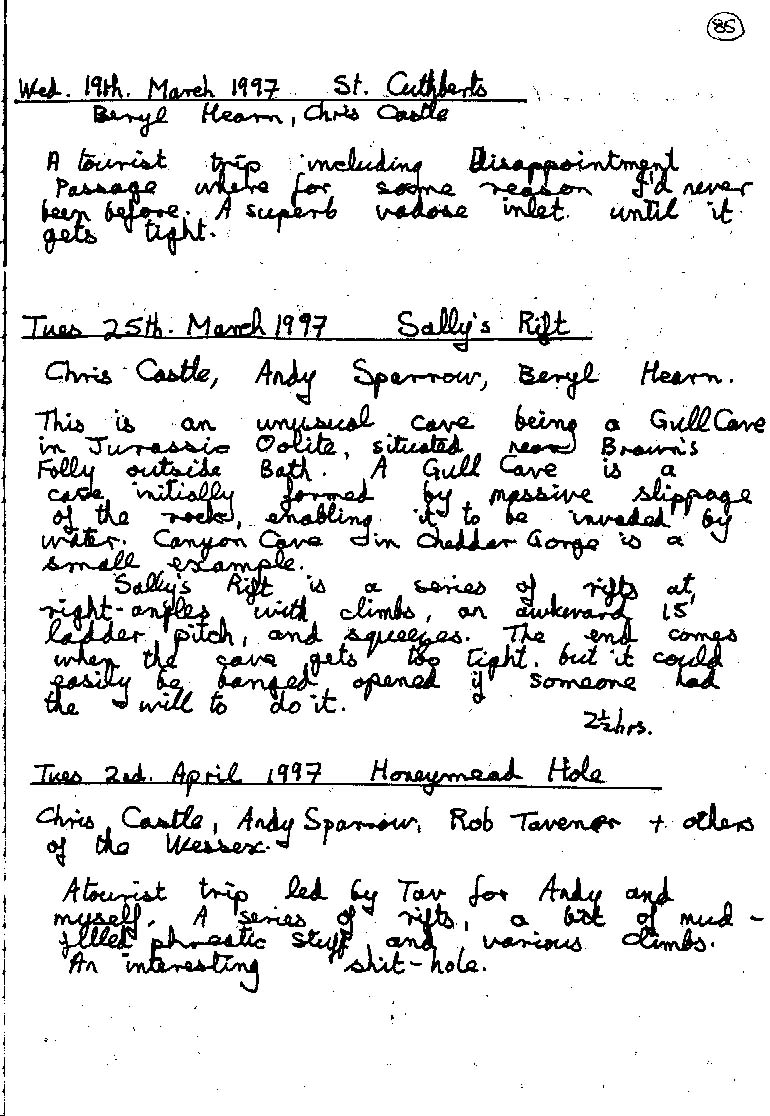 85
Wed. 19th. March 1997 St. Cuthberts
Beryl Hearn, Chris Castle
A tourist trip including Disappointment
Passage where for some reason I'd never
been before. A superb vadose inlet until it
gets tight.
Tues 25th. March 1997 Sally's Rift
Chris Castle, Andy Sparrow, Beryl Hearn.
This is an unusual cave being a Gull Cave
in Jurassic Oolite, situated near Brown's
Folly outside Bath. A Gull Cave is a
cave initially formed by massive slippage
of the rock, enabling it to be invaded by
water. Canyon Cave in Cheddar Gorge is a
small example.
Sally's Rift is a series of rifts at
right-angles with climbs, an awkward 15'
ladder pitch, and squeezes. The end comes
when the cave gets too tight, but it could
easily be banged opened if someone had
the will to do it.
2½hrs.
Tues 2nd. April 1997 Honeymead Hole
Chris Castle, Andy Sparrow, Rob Tavener + others
of the Wessex.
A tourist trip led by Tav for Andy and
myself. A series of rifts, a bit of mud-
filled phreatic stuff and various climbs.
An interesting shit-hole.